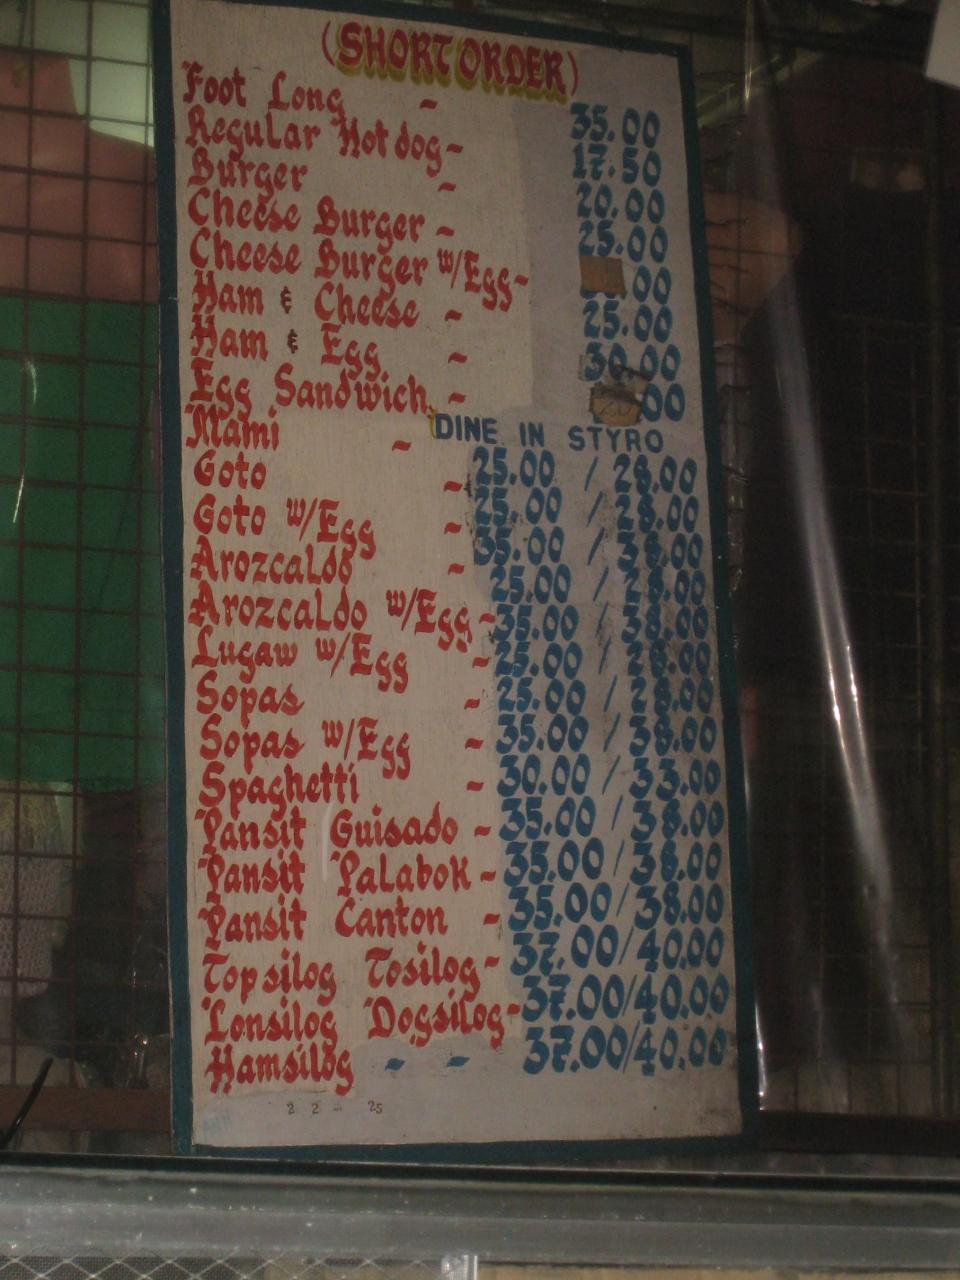 (SHORT ORDER)
Foot Long - 35.00
Regular Hotdog - 17.50
Burger - 20.00
Cheese Burger - 25.00
Cheese Burger w/Egg - .00
Ham & Cheese - 25.00
Ham & Egg - 30.00
Egg Sandwich - 20.00
DINE IN STYRO
Mami - 25.00 / 28.00
Goto - 25.00 / 28.00
Goto w/Egg - 35.00 / 38.00
Arozcaldo - 25.00 / 28.00
Arozcaldo w/Egg - 35.00 / 38.00
Lugaw w/Egg - 25.00 / 28.00
Sopas - 25.00 / 28.00
Sopas w/Egg - 35.00 / 38.00
Spaghetti - 30.00 / 33.00
Pansit Guisado - 35.00 / 38.00
Pansit Palabok - 35.00 / 38.00
Pansit Canton - 35.00 / 38.00
Topsilog Tosilog - 37.00/40.00
Lonsilog Dogsilog - 37.00/40.00
Hamsilog - - 37.00/40.00
2 2 - 25